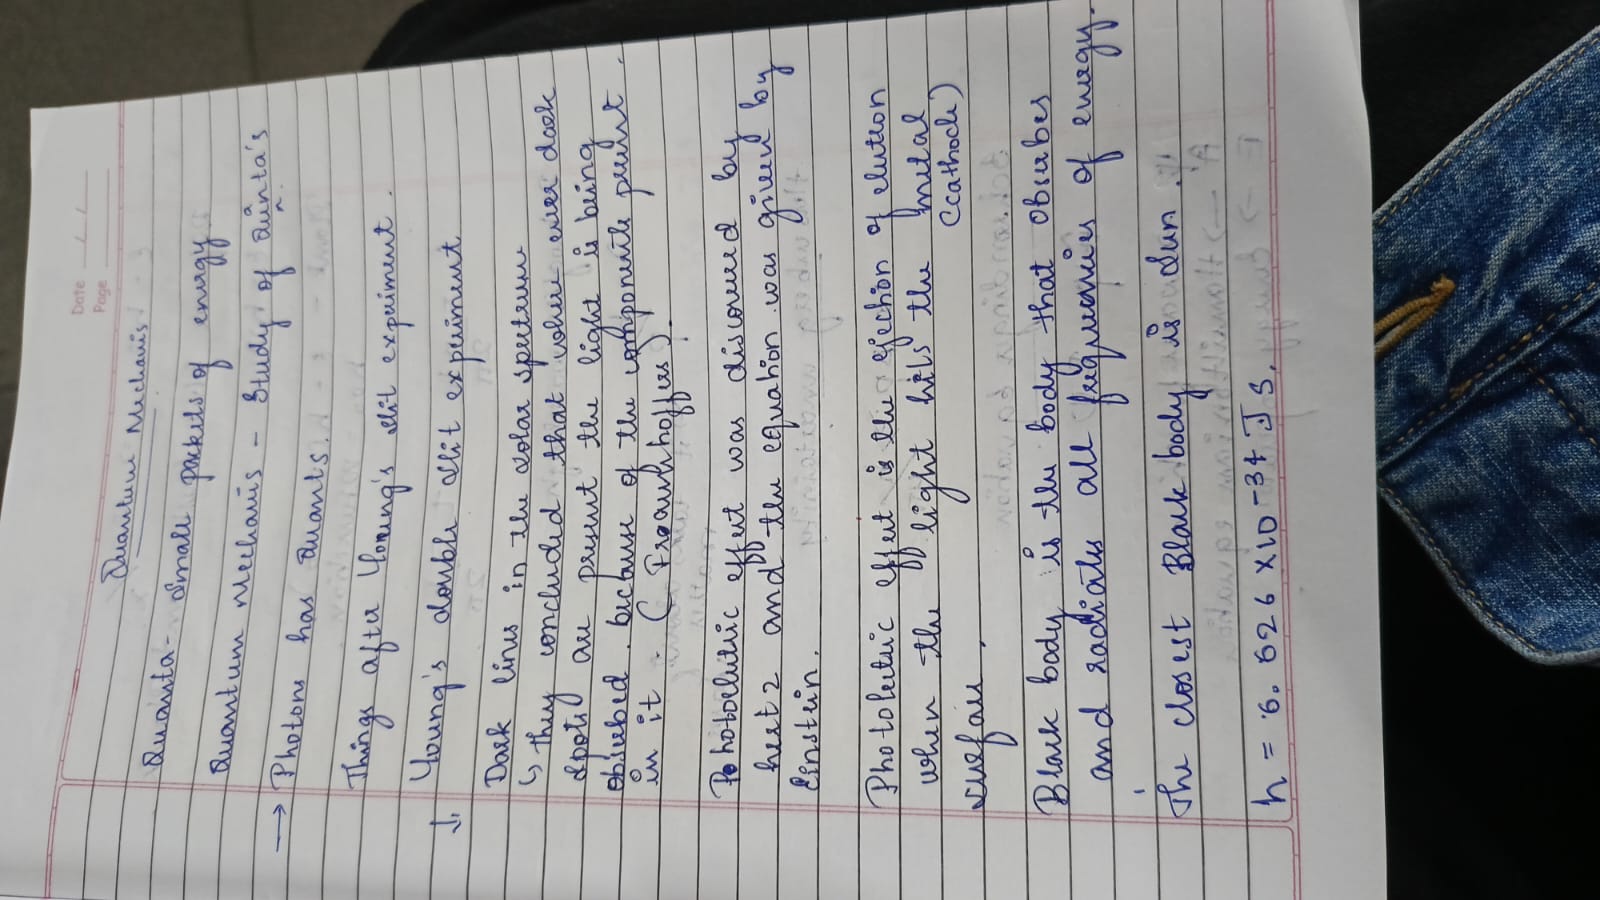 Date
Page
Quantum Mechanis
Quanta - small packets of energy
Quantum Mechanis - Study of Qunta's
→ Photons has Quants.
Things after Young's slit expriment.
↓ Young's double slit expriment
Dark lines in the solar spectrum
↳ they concluded that where ever dark
spots are present the light is being
obsurbed because of the components present
in it. (Fraunhoffers)
Photoelectric effect was discovered by
hertz and the equation was given by
Einstein.
Photoletric effect is the ejection of eletron
when the light hits the metal
surface. (cathode)
Black body is the body that obsurbes
and radiats all frequenies of energy.
The closest Black body is Sun.
h = 6.626 x 10 -34 J S.